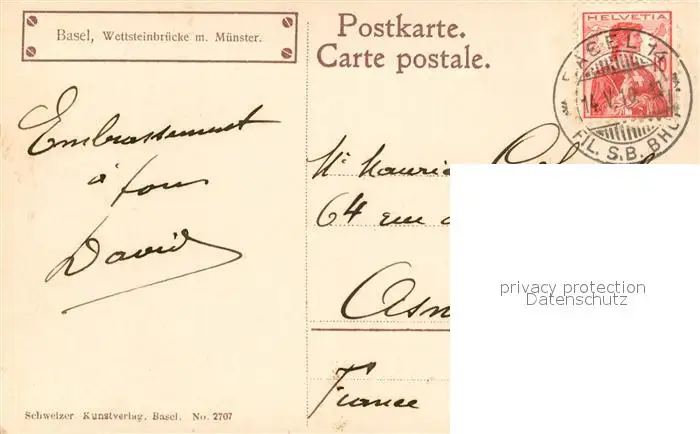 Basel, Wettsteinbrücke m. Münster.
Postkarte.
Carte postale.
HELVETIA
BASEL 14
FIL. S.B. BHOF
Embrassement
à tous
David
Mr Maurice
64 rue
Asn
France
privacy protection
Datenschutz
Schweizer Kunstverlag, Basel. No. 2707